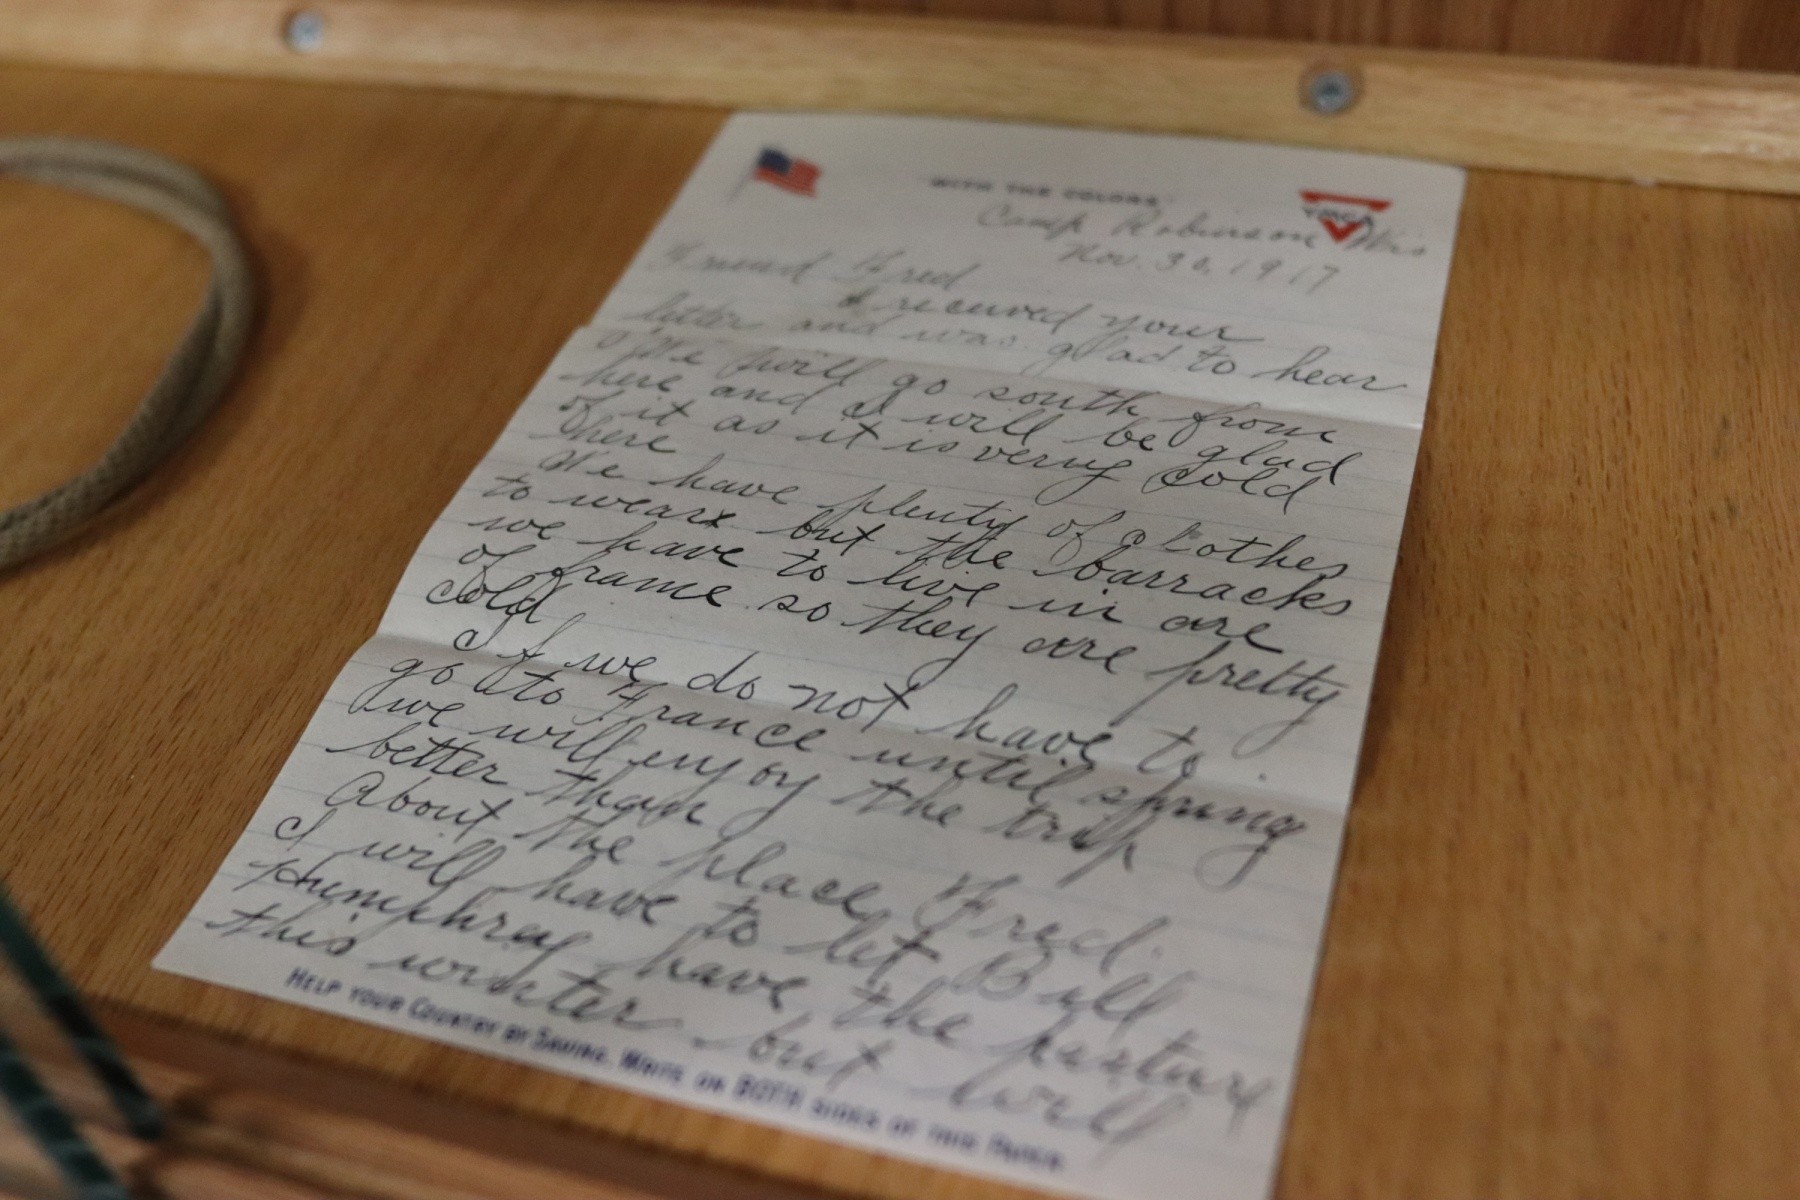 "WITH THE COLORS"
YMCA
Camp Robinson Wis
Nov. 30, 1917
Friend Fred
I received your
letter and was glad to hear
We will go south from
here and I will be glad
of it as it is very cold
here
We have plenty of clothes
to wear but the barracks
we have to live in are
of frame so they are pretty
cold
If we do not have to
go to France until spring
we will enjoy the trip
better than
About the place Fred.
I will have to let Bill
Humphrey have the pasture
this winter but will
HELP YOUR COUNTRY BY SAVING. WRITE ON BOTH SIDES OF THIS PAPER